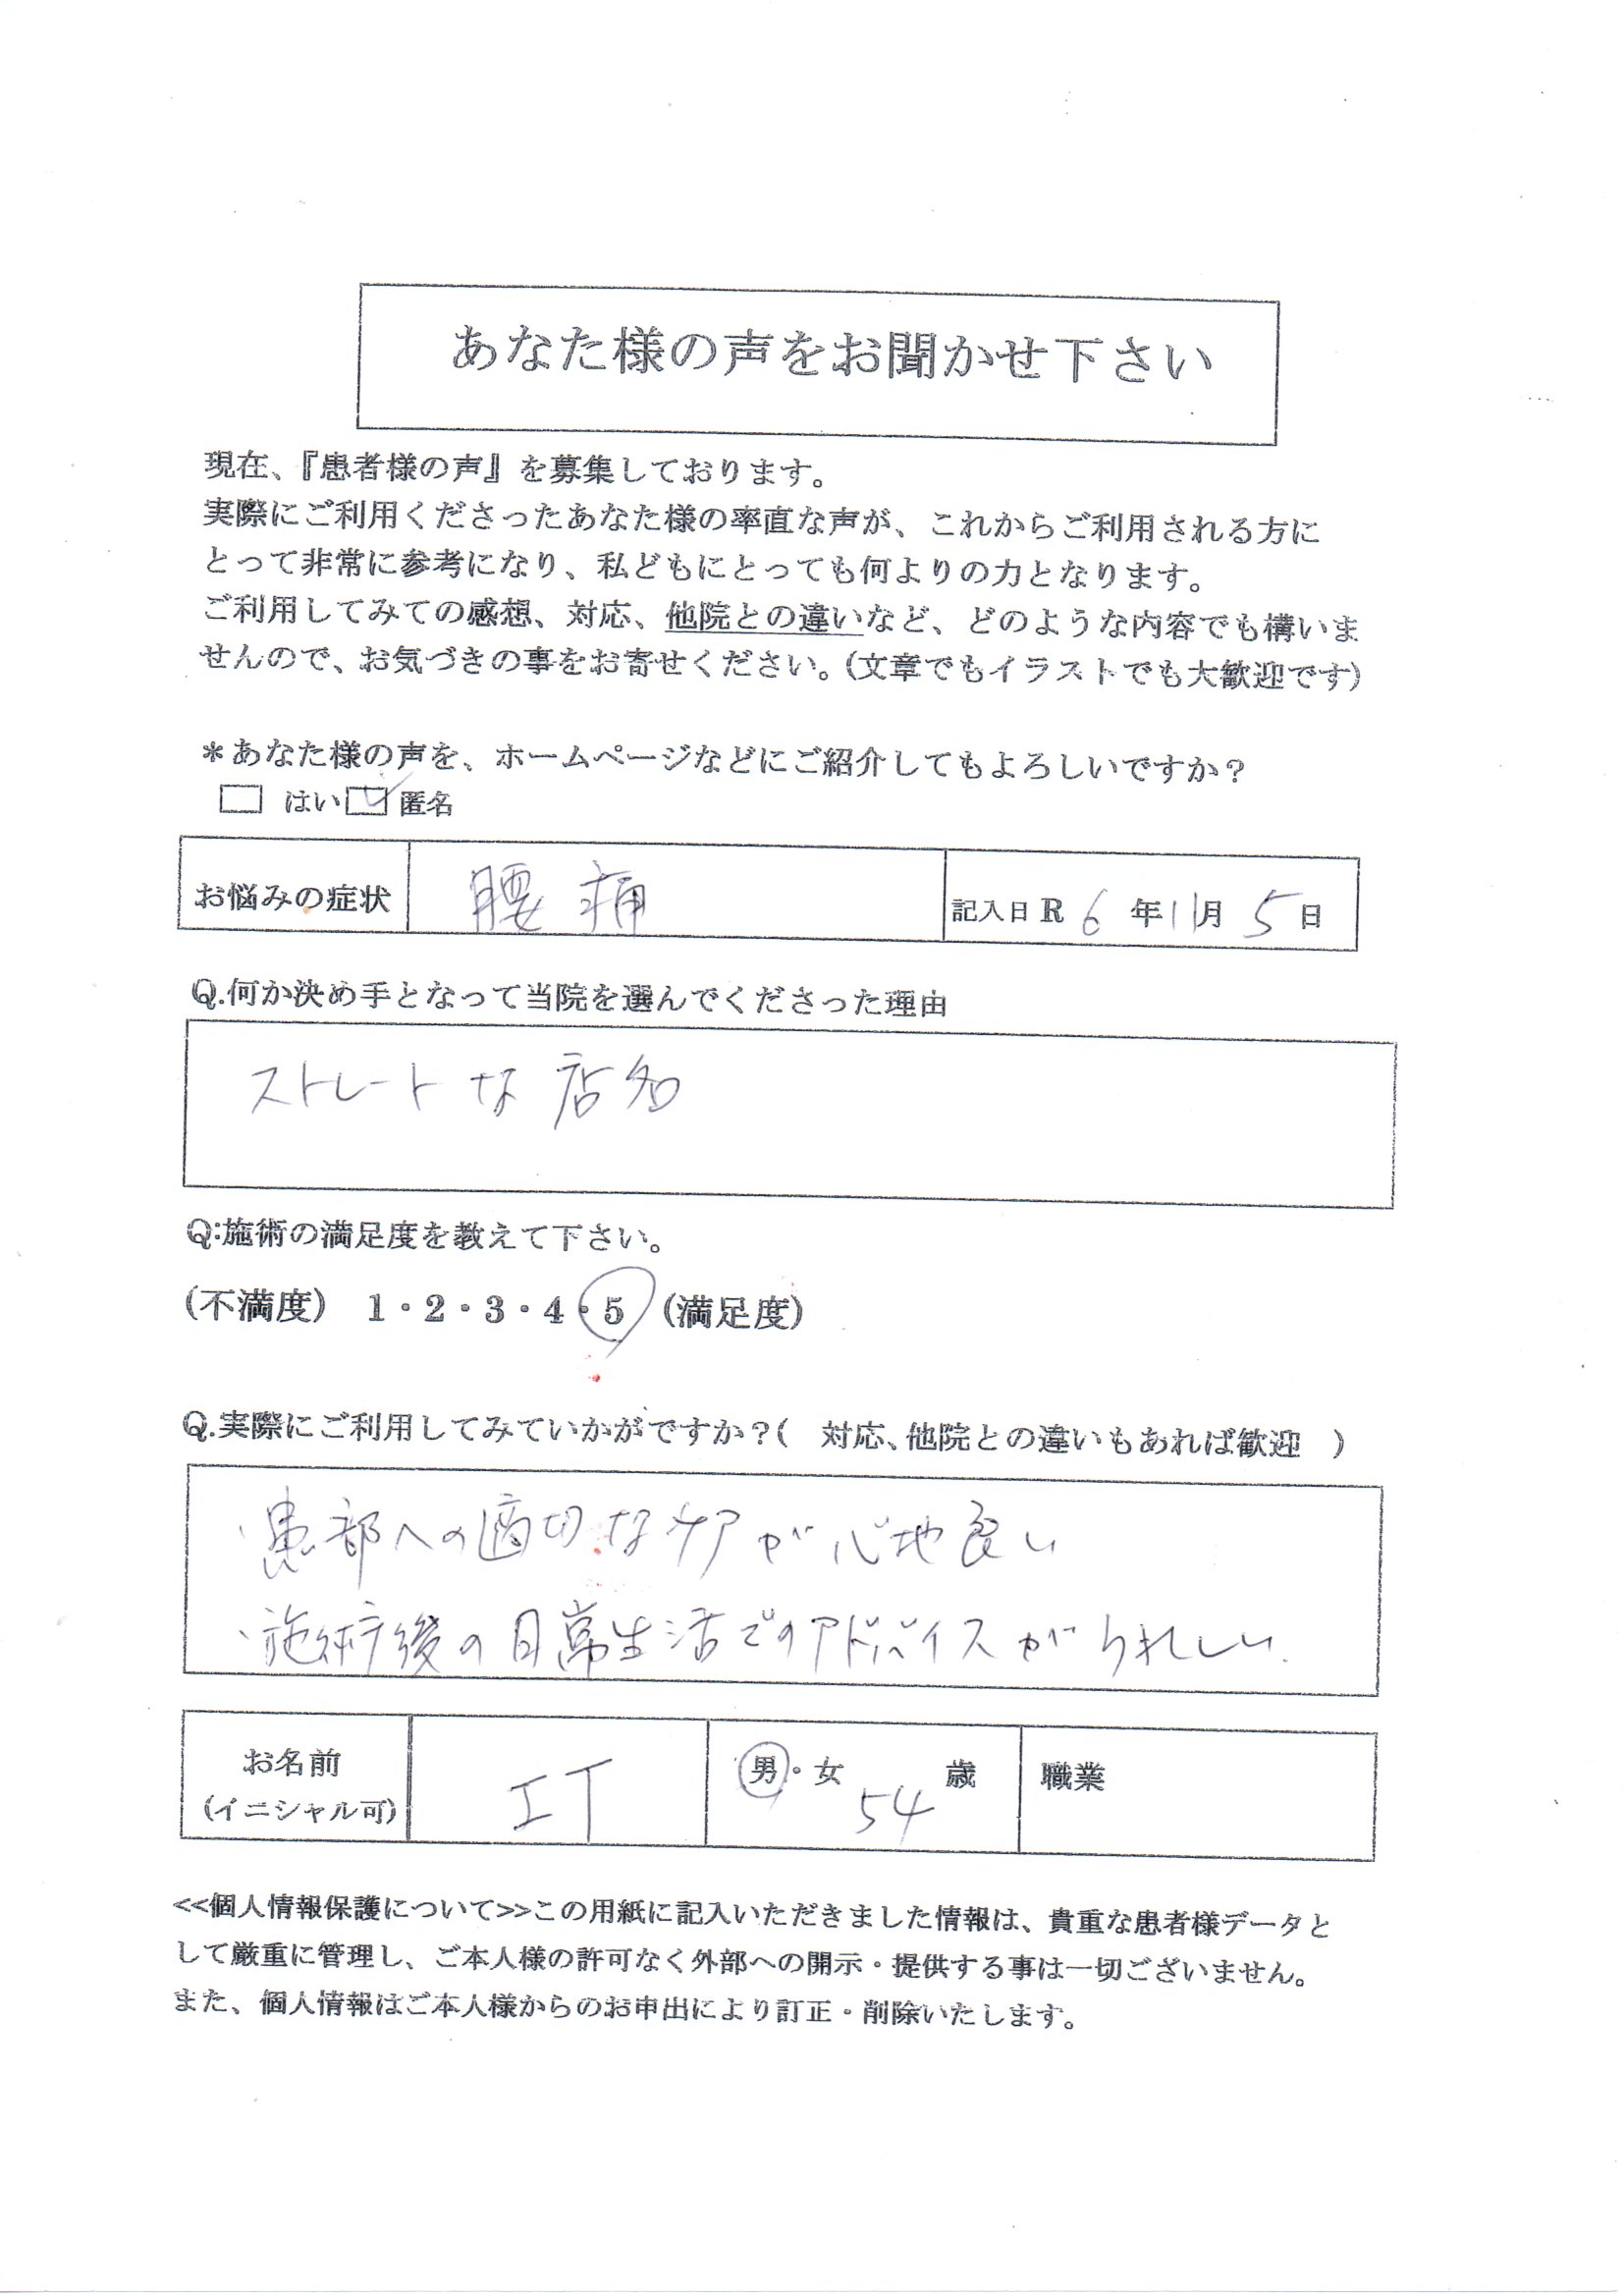 あなた様の声をお聞かせ下さい
現在、『患者様の声』を募集しております。
実際にご利用くださったあなた様の率直な声が、これからご利用される方に
とって非常に参考になり、私どもにとっても何よりの力となります。
ご利用してみての感想、対応、他院との違いなど、どのような内容でも構いま
せんので、お気づきの事をお寄せください。(文章でもイラストでも大歓迎です)
＊あなた様の声を、ホームページなどにご紹介してもよろしいですか?
□ はい ☑ 匿名
お悩みの症状 腰痛 記入日 R 6 年 11 月 5 日
Q.何か決め手となって当院を選んでくださった理由
ストレートな店名
Q:施術の満足度を教えて下さい。
(不満度) 1・2・3・4・5 (満足度)
Q.実際にご利用してみていかがですか?( 対応、他院との違いもあれば歓迎 )
・患部への適切なケアが心地良い
・施術後の日常生活でのアドバイスがうれしい.
お名前 男・女 54 歳 職業
(イニシャル可) IT
<<個人情報保護について>>この用紙に記入いただきました情報は、貴重な患者様データと
して厳重に管理し、ご本人様の許可なく外部への開示・提供する事は一切ございません。
また、個人情報はご本人様からのお申出により訂正・削除いたします。